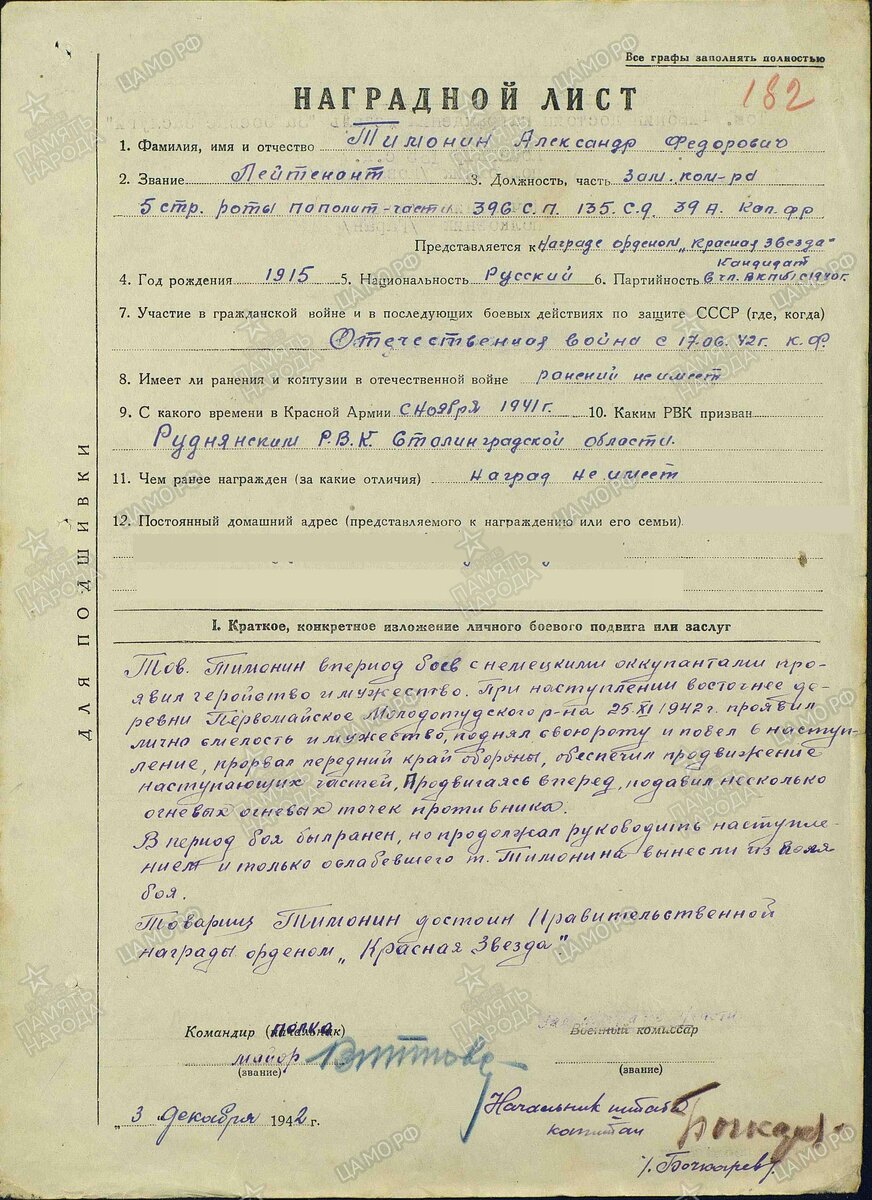 Все графы заполнять полностью
182
НАГРАДНОЙ ЛИСТ
1. Фамилия, имя и отчество Тимонин Александр Федорович
2. Звание Лейтенант 3. Должность, часть Зам. ком-ра
5 стр. роты по полит-части 396 С.П. 135. С.Д. 39 А. Кал. фр
Представляется к награде орденом „Красная Звезда"
Кандидат
4. Год рождения 1915 5. Национальность Русский 6. Партийность в чл. ВКП(б) с 1940г.
7. Участие в гражданской войне и в последующих боевых действиях по защите СССР (где, когда)
Отечественная война с 17.06.42г. К.Ф.
8. Имеет ли ранения и контузии в отечественной войне ранений не имеет
9. С какого времени в Красной Армии с ноября 1941г. 10. Каким РВК призван
Руднянским Р.В.К. Сталинградской области.
11. Чем ранее награжден (за какие отличия) наград не имеет
12. Постоянный домашний адрес (представляемого к награждению или его семьи)
ДЛЯ ПОДШИВКИ
I. Краткое, конкретное изложение личного боевого подвига или заслуг
Тов. Тимонин в период боев с немецкими оккупантами про-
явил геройство и мужество. При наступлении восточнее де-
ревни Первомайское Молодотудского р-на 25.XI 1942г. проявил
лично смелость и мужество, поднял свою роту и повел в наступ-
ление, прорвал передний край обороны, обеспечил продвижение
наступающих частей, Продвигаясь вперед, подавил несколько
огневых огневых точек противника.
В период боя был ранен, но продолжал руководить наступле-
нием и только ослабевшего т. Тимонина вынесли из поля
боя.
Товарищ Тимонин достоин Правительственной
награды орденом „Красная Звезда".
Командир (начальник) полка
Военный комиссар
майор
(звание)
(звание)
„3 декабря 1942 г.
Начальник штаба
капитан
/. Бочкарев/.
ЦАМО.РФ
ПАМЯТЬ НАРОДА